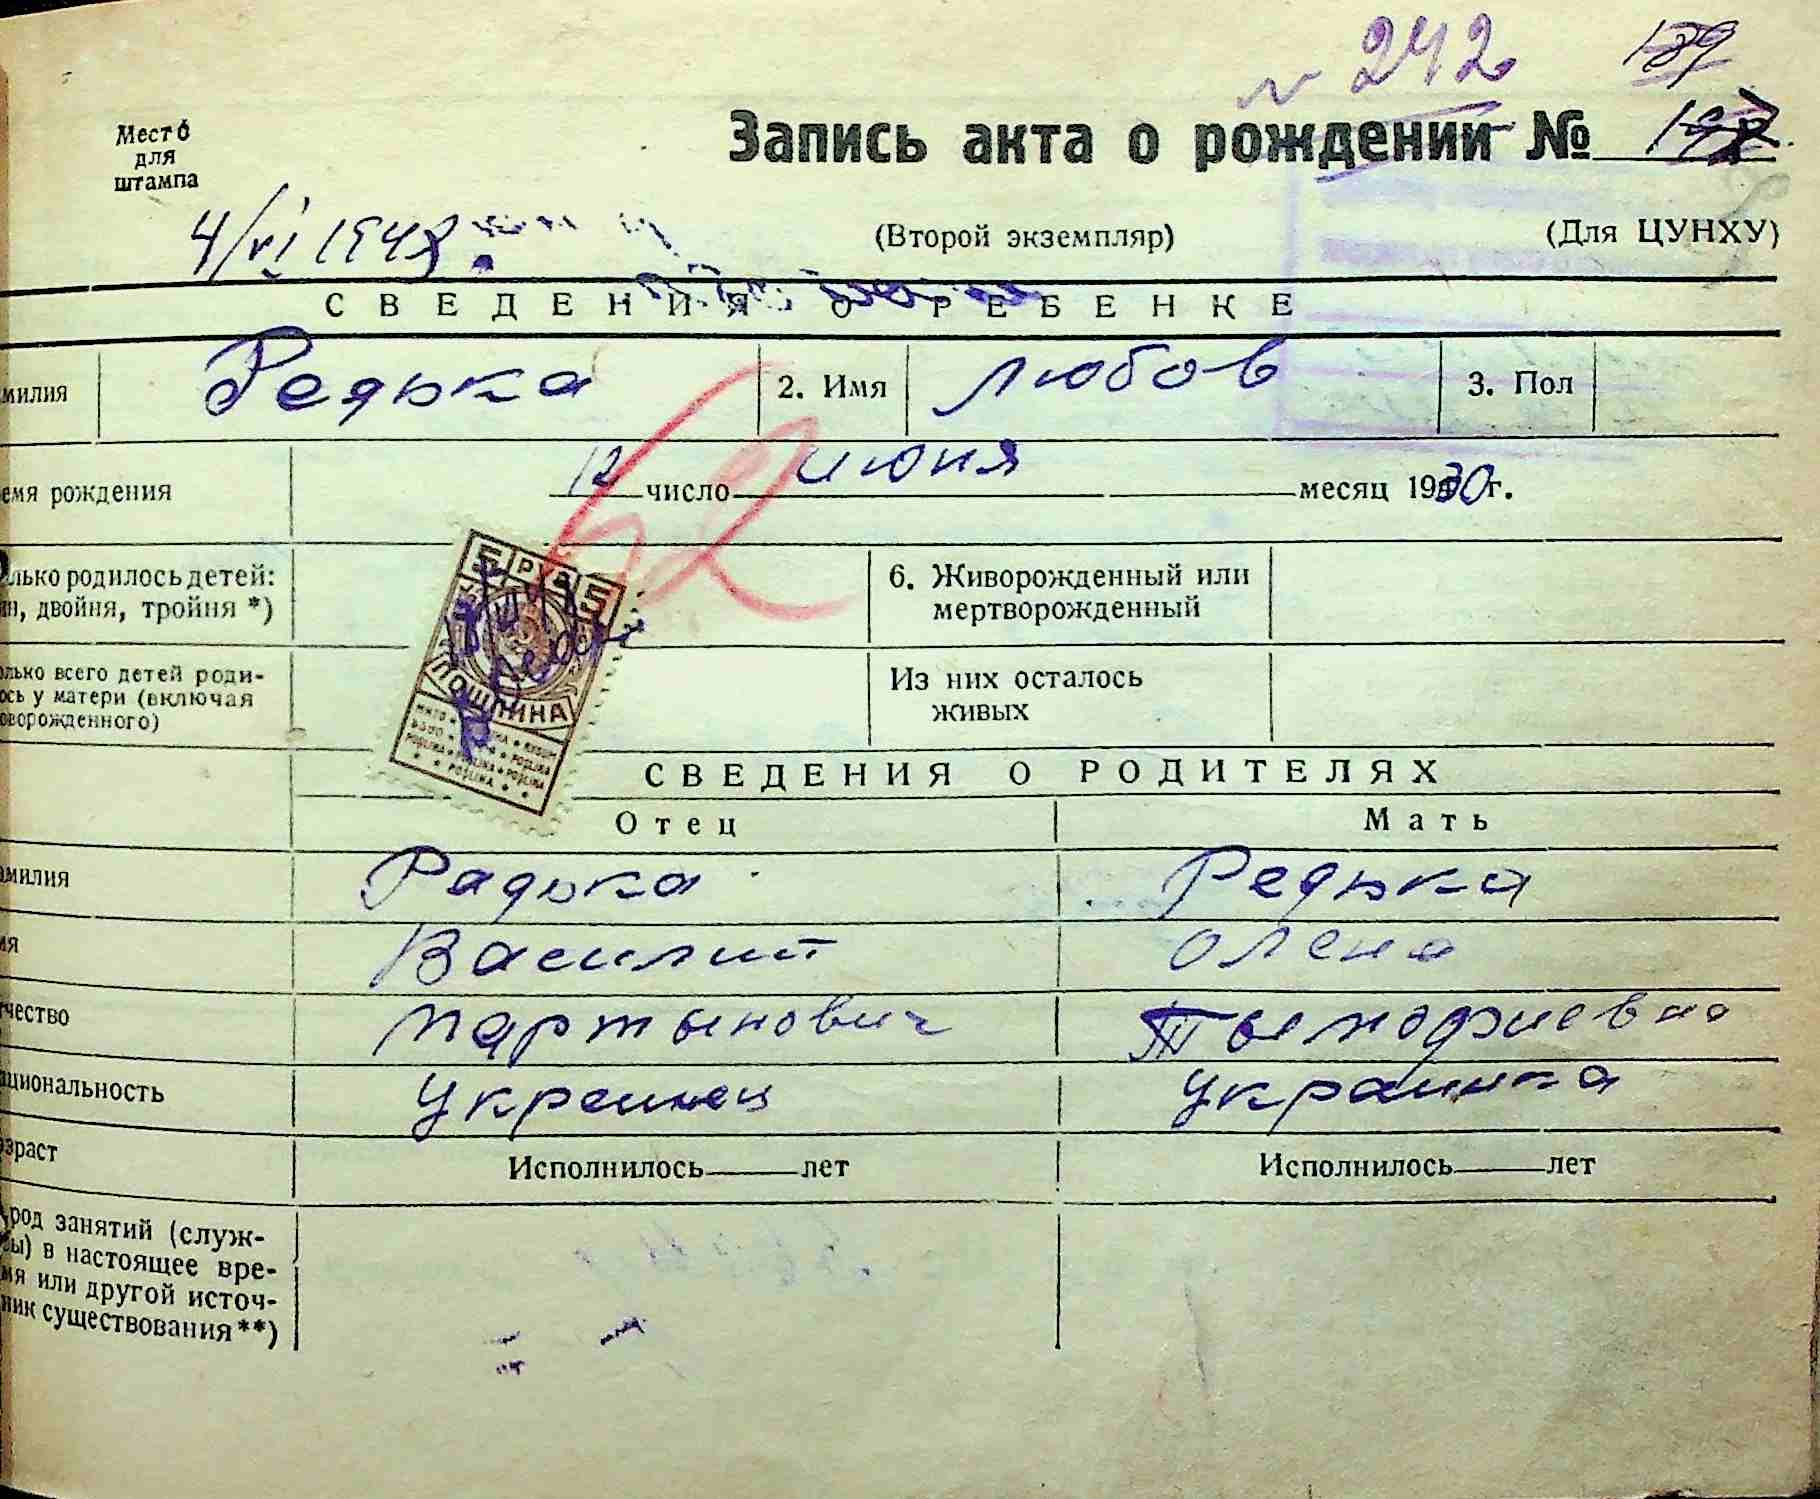 № 242 189
Место
для
штампа
Запись акта о рождении №
4/VI 1948
(Второй экземпляр)
(Для ЦУНХУ)
СВЕДЕНИЯ О РЕБЕНКЕ
милия Редька 2. Имя Любов 3. Пол
емя рождения 12 число июня месяц 1930г.
лько родилось детей:
ин, двойня, тройня *)
6. Живорожденный или
мертворожденный
62
5 РУБ 5
ПОШЛИНА
олько всего детей роди-
ось у матери (включая
оворожденного)
Из них осталось
живых
СВЕДЕНИЯ О РОДИТЕЛЯХ
Отец Мать
амилия Радька Редька
мя Василий Олена
тчество Мартынович Тымофиевна
ациональность Украинец Украинка
озраст Исполнилось лет Исполнилось лет
род занятий (служ-
бы) в настоящее вре-
мя или другой источ-
ник существования**)